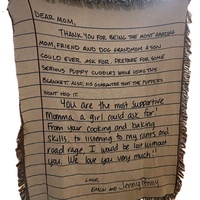 DEAR MOM,
THANK YOU FOR BEING THE MOST AMAZING
MOM, FRIEND AND DOG GRANDMOM A SON
COULD EVER ASK FOR. PREPARE FOR SOME
SERIOUS PUPPY CUDDLES WHILE USING THIS
BLANKET. ALSO, NO GUARANTEE THAT THE PUPPERS
WON'T HOG IT.
You are the most supportive
Momma a girl could ask for!
From your cooking and baking
skills, to listening to my rants and
road rage, I would be lost without
you. We love you very much!
LOVE,
and Jenny Penny